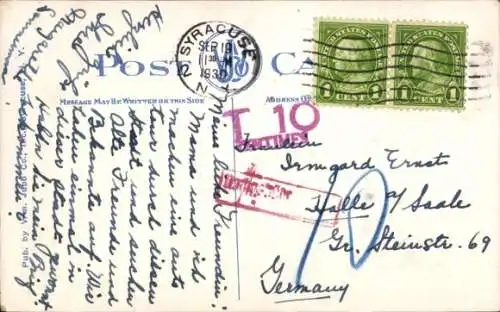 POST CARD
MESSAGE MAY BE WRITTEN ON THIS SIDE
ADDRESS
SYRACUSE
SEP 19
1930
N.Y.
UNITED STATES POSTAGE
1 CENT 1
UNITED STATES POSTAGE
1 CENT 1
T 10
CENTIMES
Meine liebe Freundin:
Mama und ich
machen eine auto
tour durch diesen
Staat und suchen
Alte Freunde und
Bekannte auf. Wir
waren einmal in
dieser Stadt gewesen.
Haben Sie mein Brief
herzlichst
Ihre
Fräulein
Irmgard Ernst
Halle a/Saale
Gr. Steinstr. 69
Germany
10
Pub. by Wm. Jubb Co., Inc., Syracuse, N. Y.